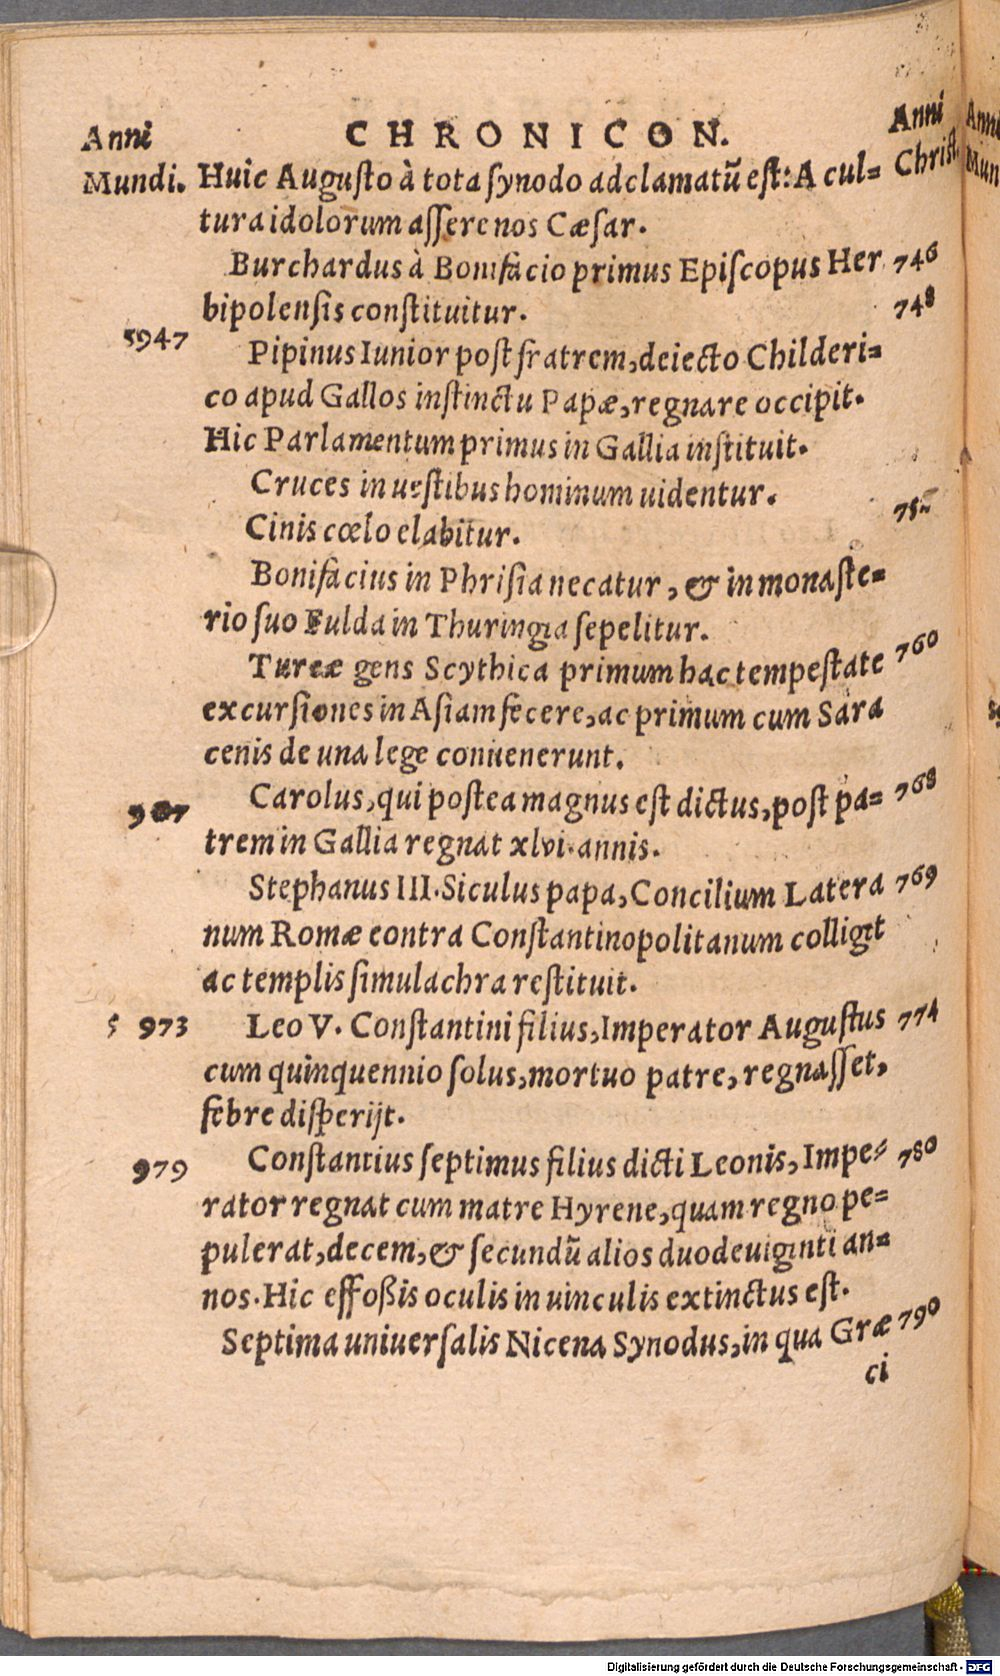 Anni CHRONICON. Anni
Mundi. Huic Augusto à tota synodo adclamatũ est: A cul= Christ.
tura idolorum assere nos Cæsar.
Burchardus à Bonifacio primus Episcopus Her 746
bipolensis constituitur. 748
5947 Pipinus Iunior post fratrem, deiecto Childeri=
co apud Gallos instinctu Papæ, regnare occipit.
Hic Parlamentum primus in Gallia instituit.
Cruces in uestibus hominum uidentur.
Cinis cœlo elabitur.
Bonifacius in Phrisia necatur, & in monaste=
rio suo Fulda in Thuringia sepelitur.
Turcæ gens Scythica primum hac tempestate 760
excursiones in Asiam fecere, ac primum cum Sara
cenis de una lege conuenerunt.
Carolus, qui postea magnus est dictus, post pa= 768
trem in Gallia regnat xlvi. annis.
Stephanus III. Siculus papa, Concilium Latera 769
num Romæ contra Constantinopolitanum colligit
ac templis simulachra restituit.
5 973 Leo V. Constantini filius, Imperator Augustus 774
cum quinquennio solus, mortuo patre, regnasset,
febre disperijt.
979 Constantius septimus filius dicti Leonis, Impe= 780
rator regnat cum matre Hyrene, quam regno pe=
pulerat, decem, & secundũ alios duodeuiginti an=
nos. Hic effoßis oculis in uinculis extinctus est.
Septima uniuersalis Nicena Synodus, in qua Græ 790
ci
Digitalisierung gefördert durch die Deutsche Forschungsgemeinschaft - DFG